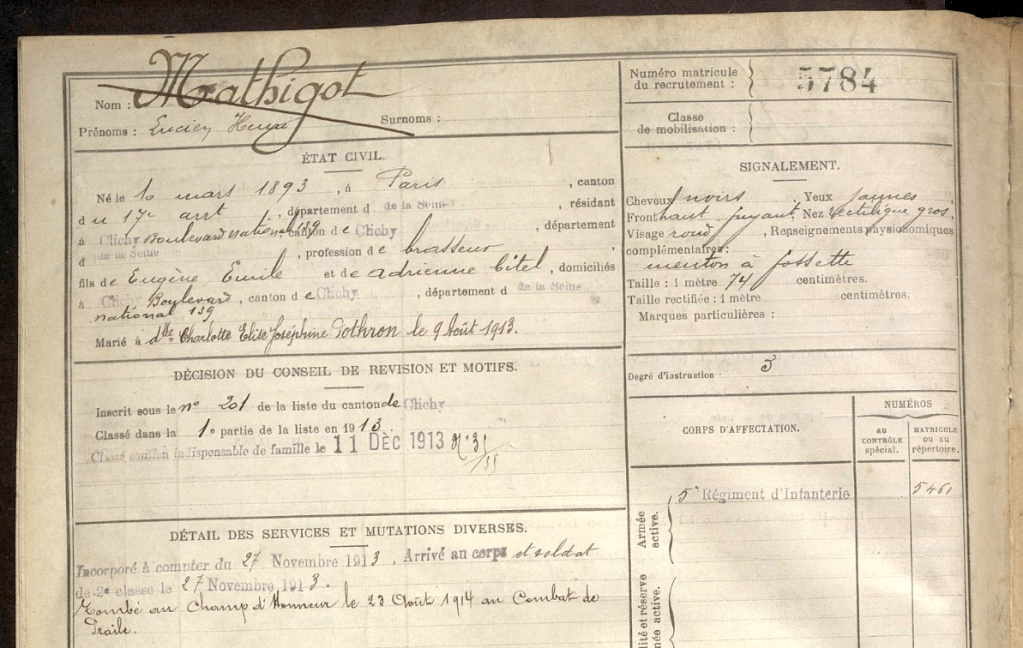 Nom : Mathigot
Prénoms : Lucien Surnoms :
ÉTAT CIVIL.
Né le 10 mars 1893, à Paris, canton
du 17e arrt, département d de la Seine, résidant
à Clichy Boulevard national 139 canton de Clichy, département
d de la Seine, profession de brasseur
fils de Eugène Emile et de Adrienne Citel, domiciliés
à Clichy Boulevard, canton de Clichy, département d de la Seine
national 139
Marié à dlle Charlotte Elise Joséphine Pothron le 9 Août 1913.
DÉCISION DU CONSEIL DE REVISION ET MOTIFS.
Inscrit sous le n° 201 de la liste du canton de Clichy
Classé dans la 1e partie de la liste en 1913.
Classé soutien indispensable de famille le 11 DÉC 1913
DÉTAIL DES SERVICES ET MUTATIONS DIVERSES.
Incorporé à compter du 27 Novembre 1913. Arrivé au corps et soldat
de 2e classe le 27 Novembre 1913.
Tombé au Champ d'Honneur le 23 Août 1914 au Combat de
Praile.
Numéro matricule
du recrutement : 5784
Classe
de mobilisation :
SIGNALEMENT.
Cheveux noirs, Yeux jaunes
Front haut fuyant, Nez rectiligne gros,
Visage rond, Renseignements physionomiques
complémentaires :
menton à fossette
Taille : 1 mètre 74 centimètres.
Taille rectifiée : 1 mètre centimètres.
Marques particulières :
Degré d'instruction 3
CORPS D'AFFECTATION.
NUMÉROS
AU CONTRÔLE spécial.
MATRICULE ou au répertoire.
Armée active.
5e Régiment d'Infanterie 5461